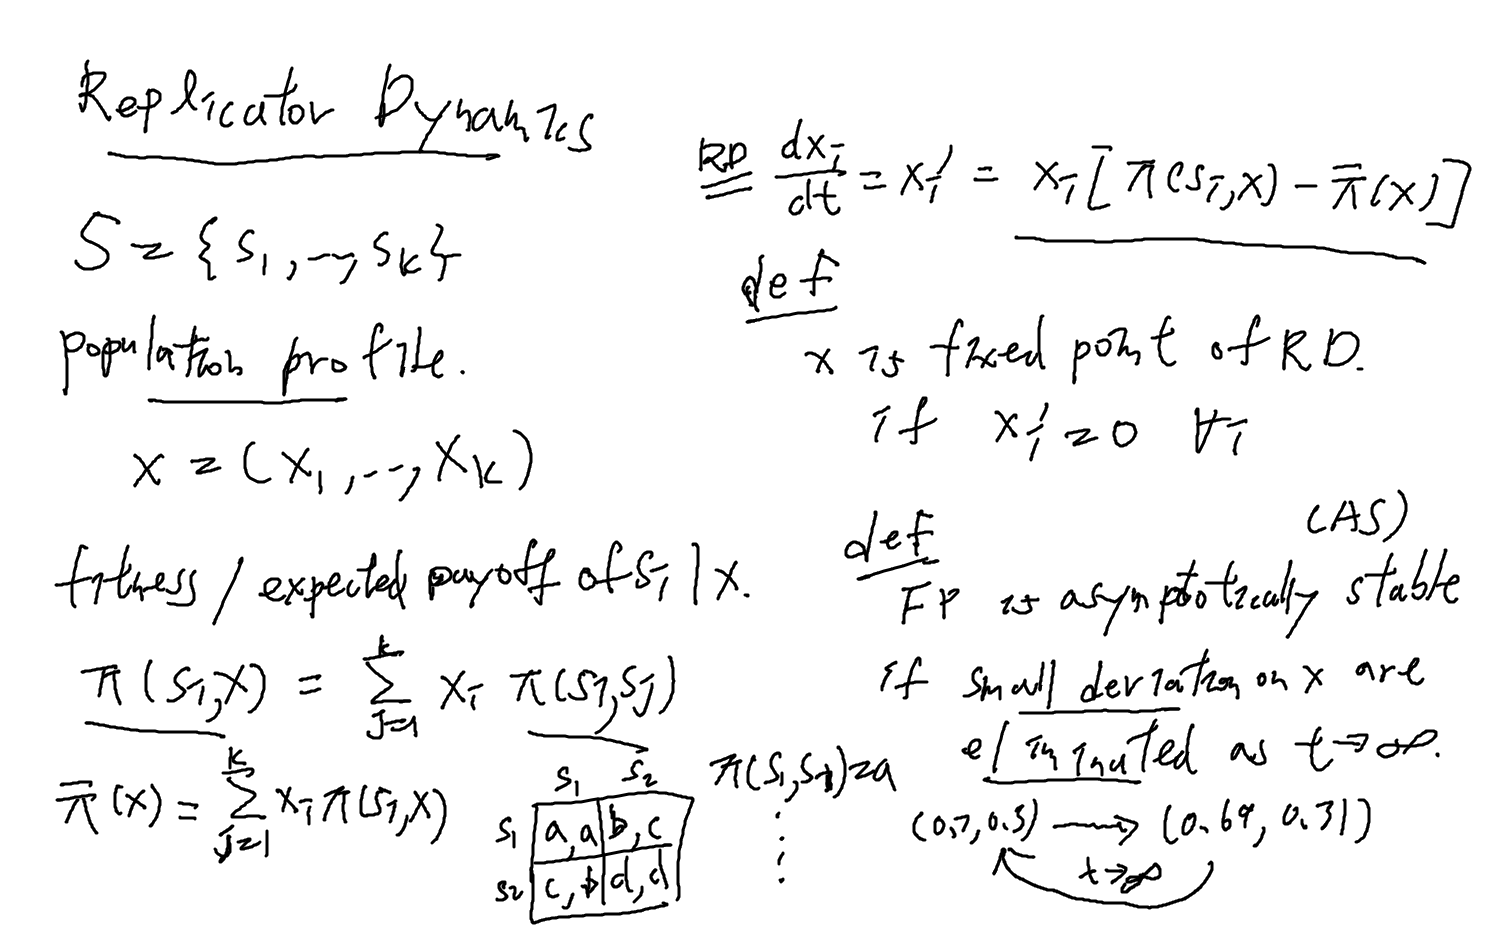 Replicator Dynamics
S = {s₁, ..., sₖ}
population profile.
x = (x₁, ..., xₖ)
fitness / expected payoff of sᵢ | x.
π(sᵢ, x) = Σ_{j=1}^{k} xᵢ π(sᵢ, sⱼ)
π̄(x) = Σ_{j=1}^{k} xᵢ π(sᵢ, x)
s₁ s₂
s₁ a, a b, c
s₂ c, b d, d
π(s₁, s₁) = a
⋮
RD dxᵢ/dt = xᵢ' = xᵢ[π(sᵢ, x) − π̄(x)]
def
x is fixed point of RD.
if xᵢ' = 0 ∀i
def (AS)
FP is asymptotically stable
if small deviation on x are
eliminated as t → ∞.
(0.7, 0.3) → (0.69, 0.31)
t → ∞